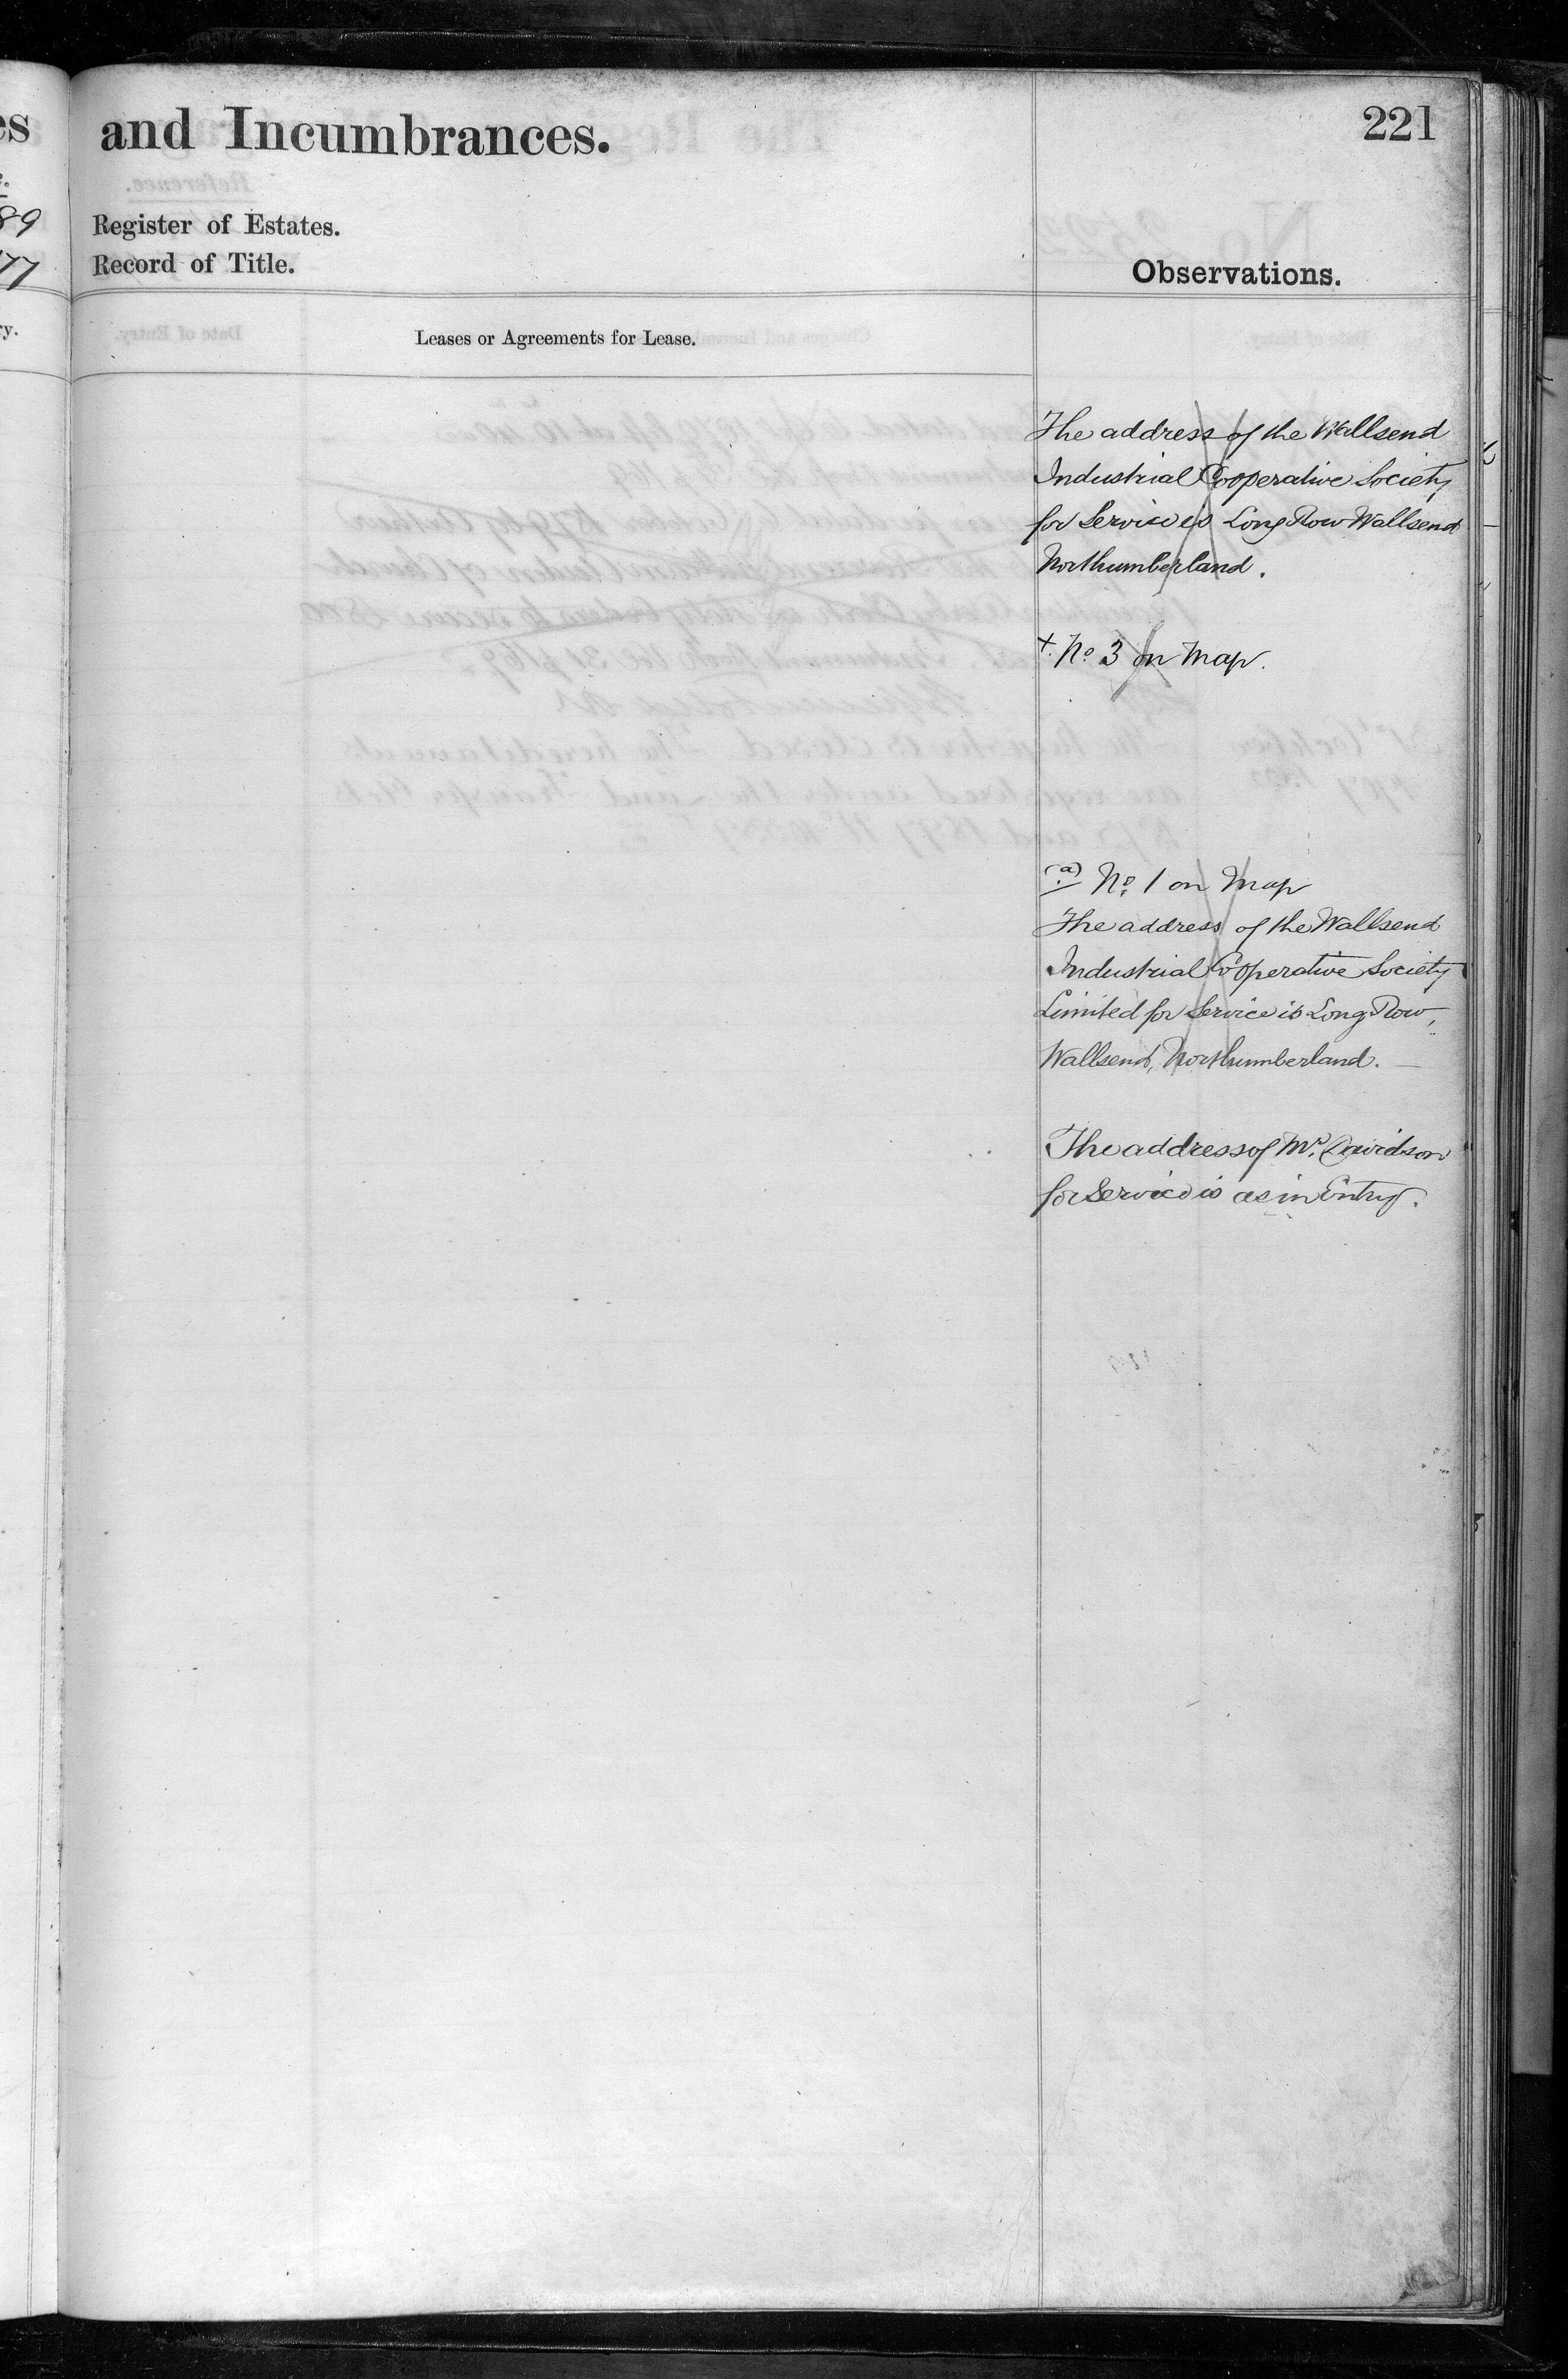 and Incumbrances.
221
Register of Estates.
Record of Title.
Observations.
Leases or Agreements for Lease.
es
89
77
y.
The address of the Wallsend
Industrial Cooperative Society
for Service is Long Row Wallsend
Northumberland.
+. No 3 on Map.
(a) No. 1 on Map
The address of the Wallsend
Industrial Cooperative Society
Limited for Service is Long Row,
Wallsend, Northumberland.
The address of Mr. Davidson
for Service is as in Entry.